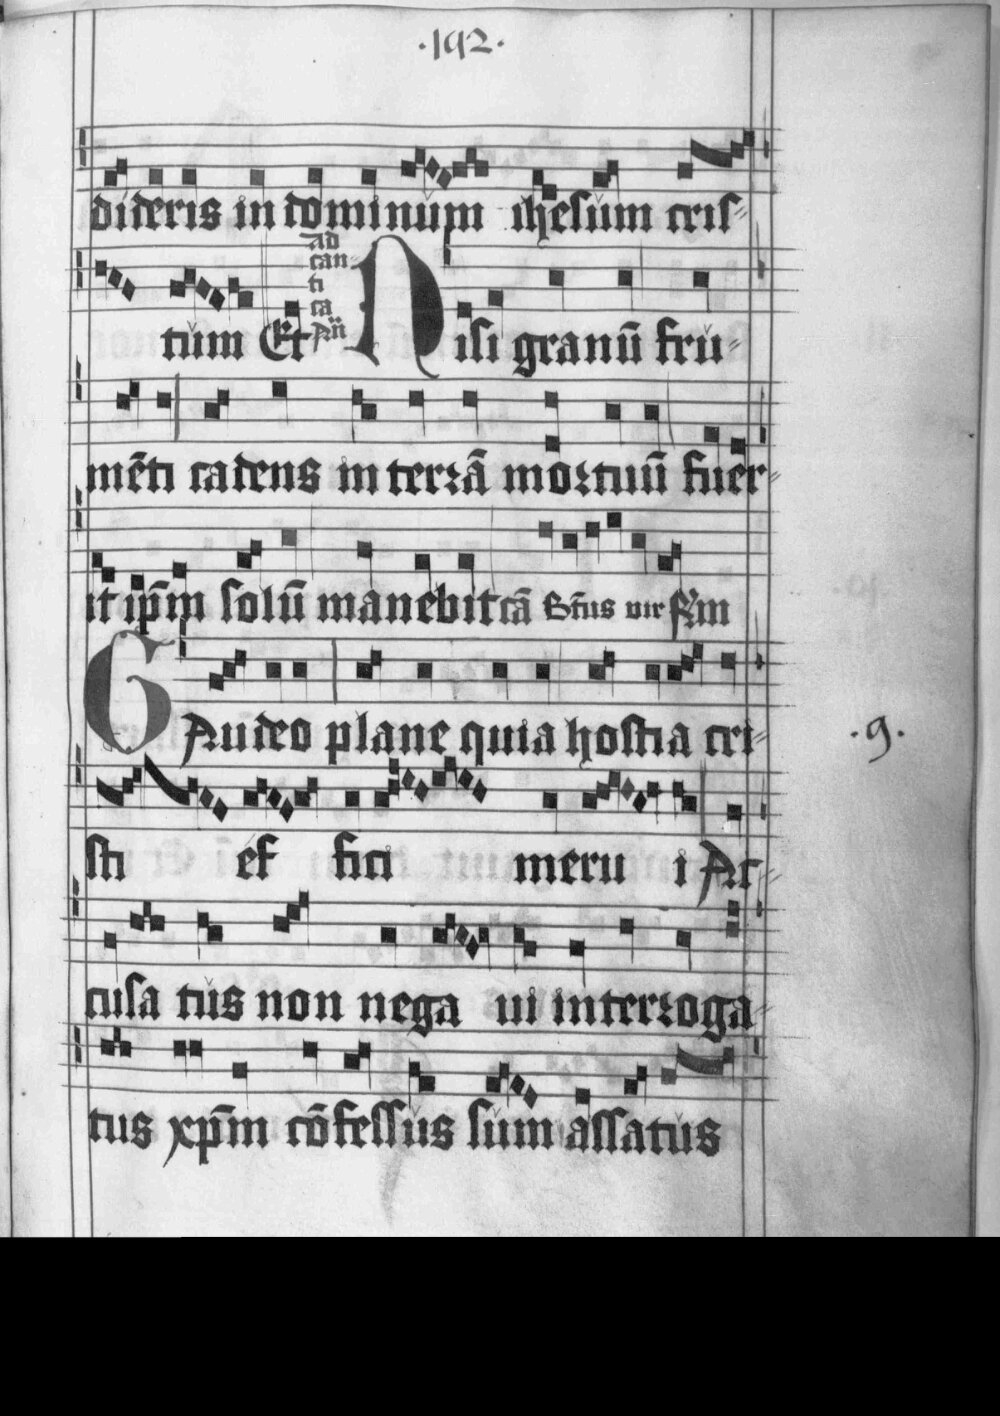 ·192·
dideris in dominum ihesum cris
ad
can
ti
ca
An̄
tum Et Nisi granū fru
mēti cadens in terrā mortuū fuer
it ip̄m solū manebit cā Btūs vir R̄m
GAudeo plane quia hostia cri ·9·
sti ef fici meru i Ac
cusa tus non nega ui interroga
tus xp̄m cōfessus sum assatus